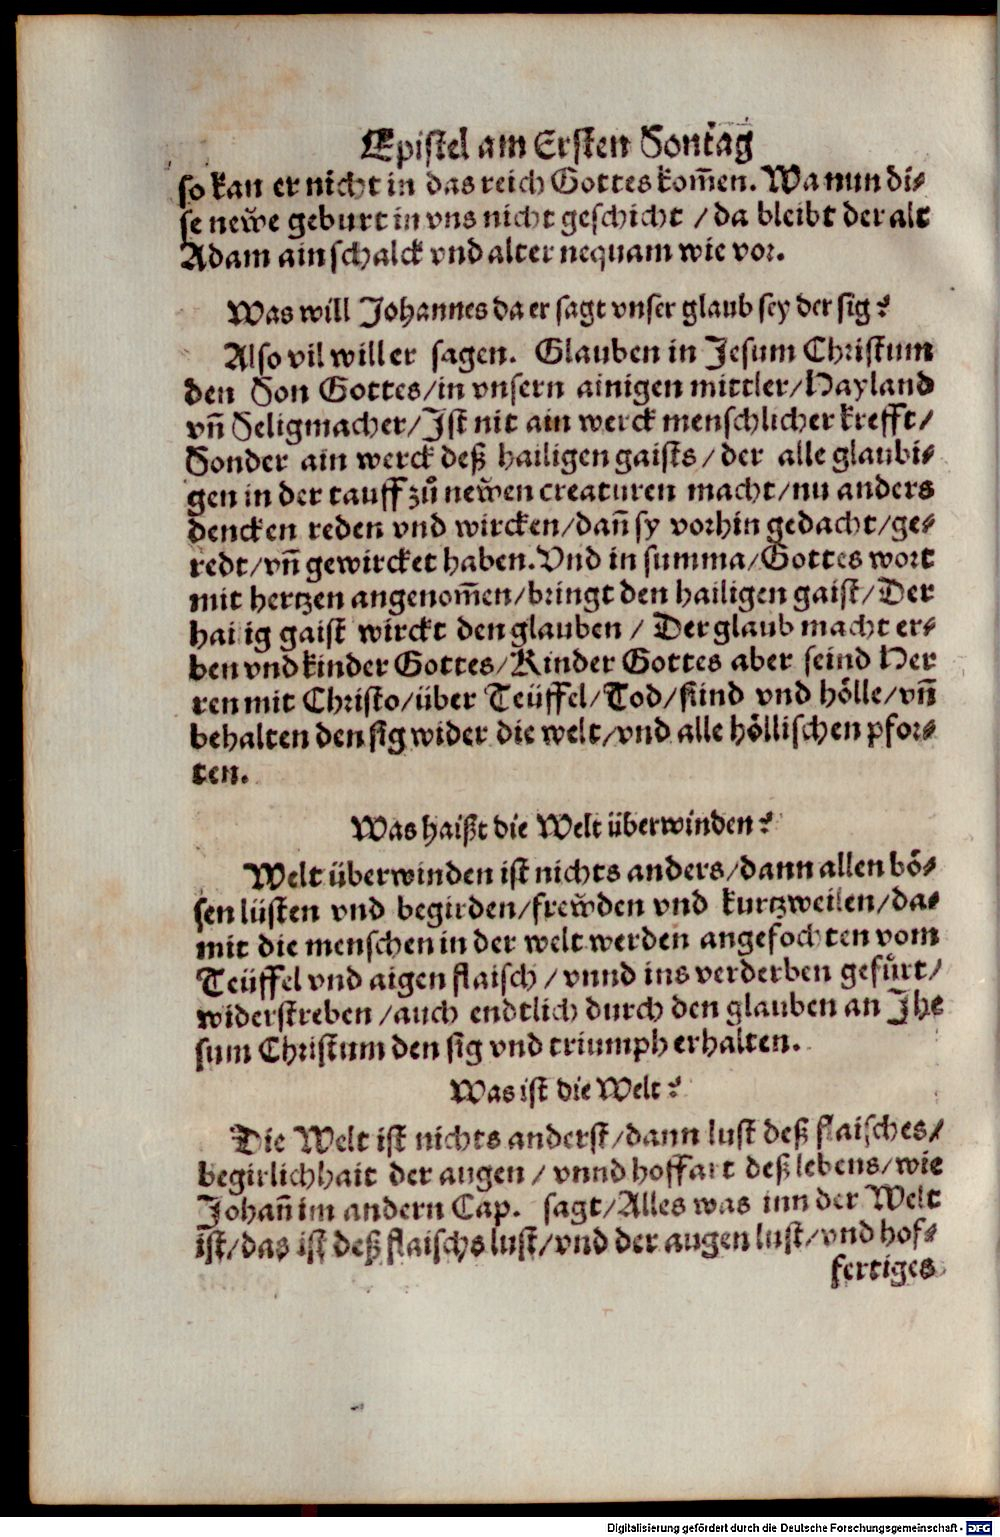 Epistel am Ersten Sontag
so kan er nicht in das reich Gottes kom̃en. Wa nun di⸗
se newe geburt in vns nicht geschicht / da bleibt der alt
Adam ain schalck vnd alter nequam wie vor.
Was will Johannes da er sagt vnser glaub sey der sig?
Also vil will er sagen. Glauben in Jesum Christum
den Son Gottes/in vnsern ainigen mittler/Hayland
vñ Seligmacher/Ist nit ain werck menschlicher krefft/
Sonder ain werck deß hailigen gaists/der alle glaubi⸗
gen in der tauff zů newen creaturen macht/nu anders
dencken reden vnd wircken/dañ sy vorhin gedacht/ge⸗
redt/vñ gewircket haben. Vnd in summa/Gottes wort
mit hertzen angenom̃en/bringt den hailigen gaist/Der
hailig gaist wirckt den glauben / Der glaub macht er⸗
ben vnd kinder Gottes/Kinder Gottes aber seind Her
ren mit Christo/über Teüffel/Tod/sünd vnd hölle/vñ
behalten den sig wider die welt/vnd alle höllischen pfor⸗
ten.
Was haißt die Welt überwinden?
Welt überwinden ist nichts anders/dann allen bö⸗
sen lüsten vnd begirden/frewden vnd kurtzweilen/da⸗
mit die menschen in der welt werden angefochten vom
Teüffel vnd aigen flaisch / vnnd ins verderben gefůrt/
widerstreben /auch endtlich durch den glauben an Jhe
sum Christum den sig vnd triumph erhalten.
Was ist die Welt?
Die Welt ist nichts anderst/dann lust deß flaisches/
begirlichhait der augen / vnnd hoffart deß lebens/wie
Johañ im andern Cap. sagt/Alles was inn der Welt
ist/das ist deß flaischs lust/vnd der augen lust/vnd hof⸗
fertiges
Digitalisierung gefördert durch die Deutsche Forschungsgemeinschaft - DFG